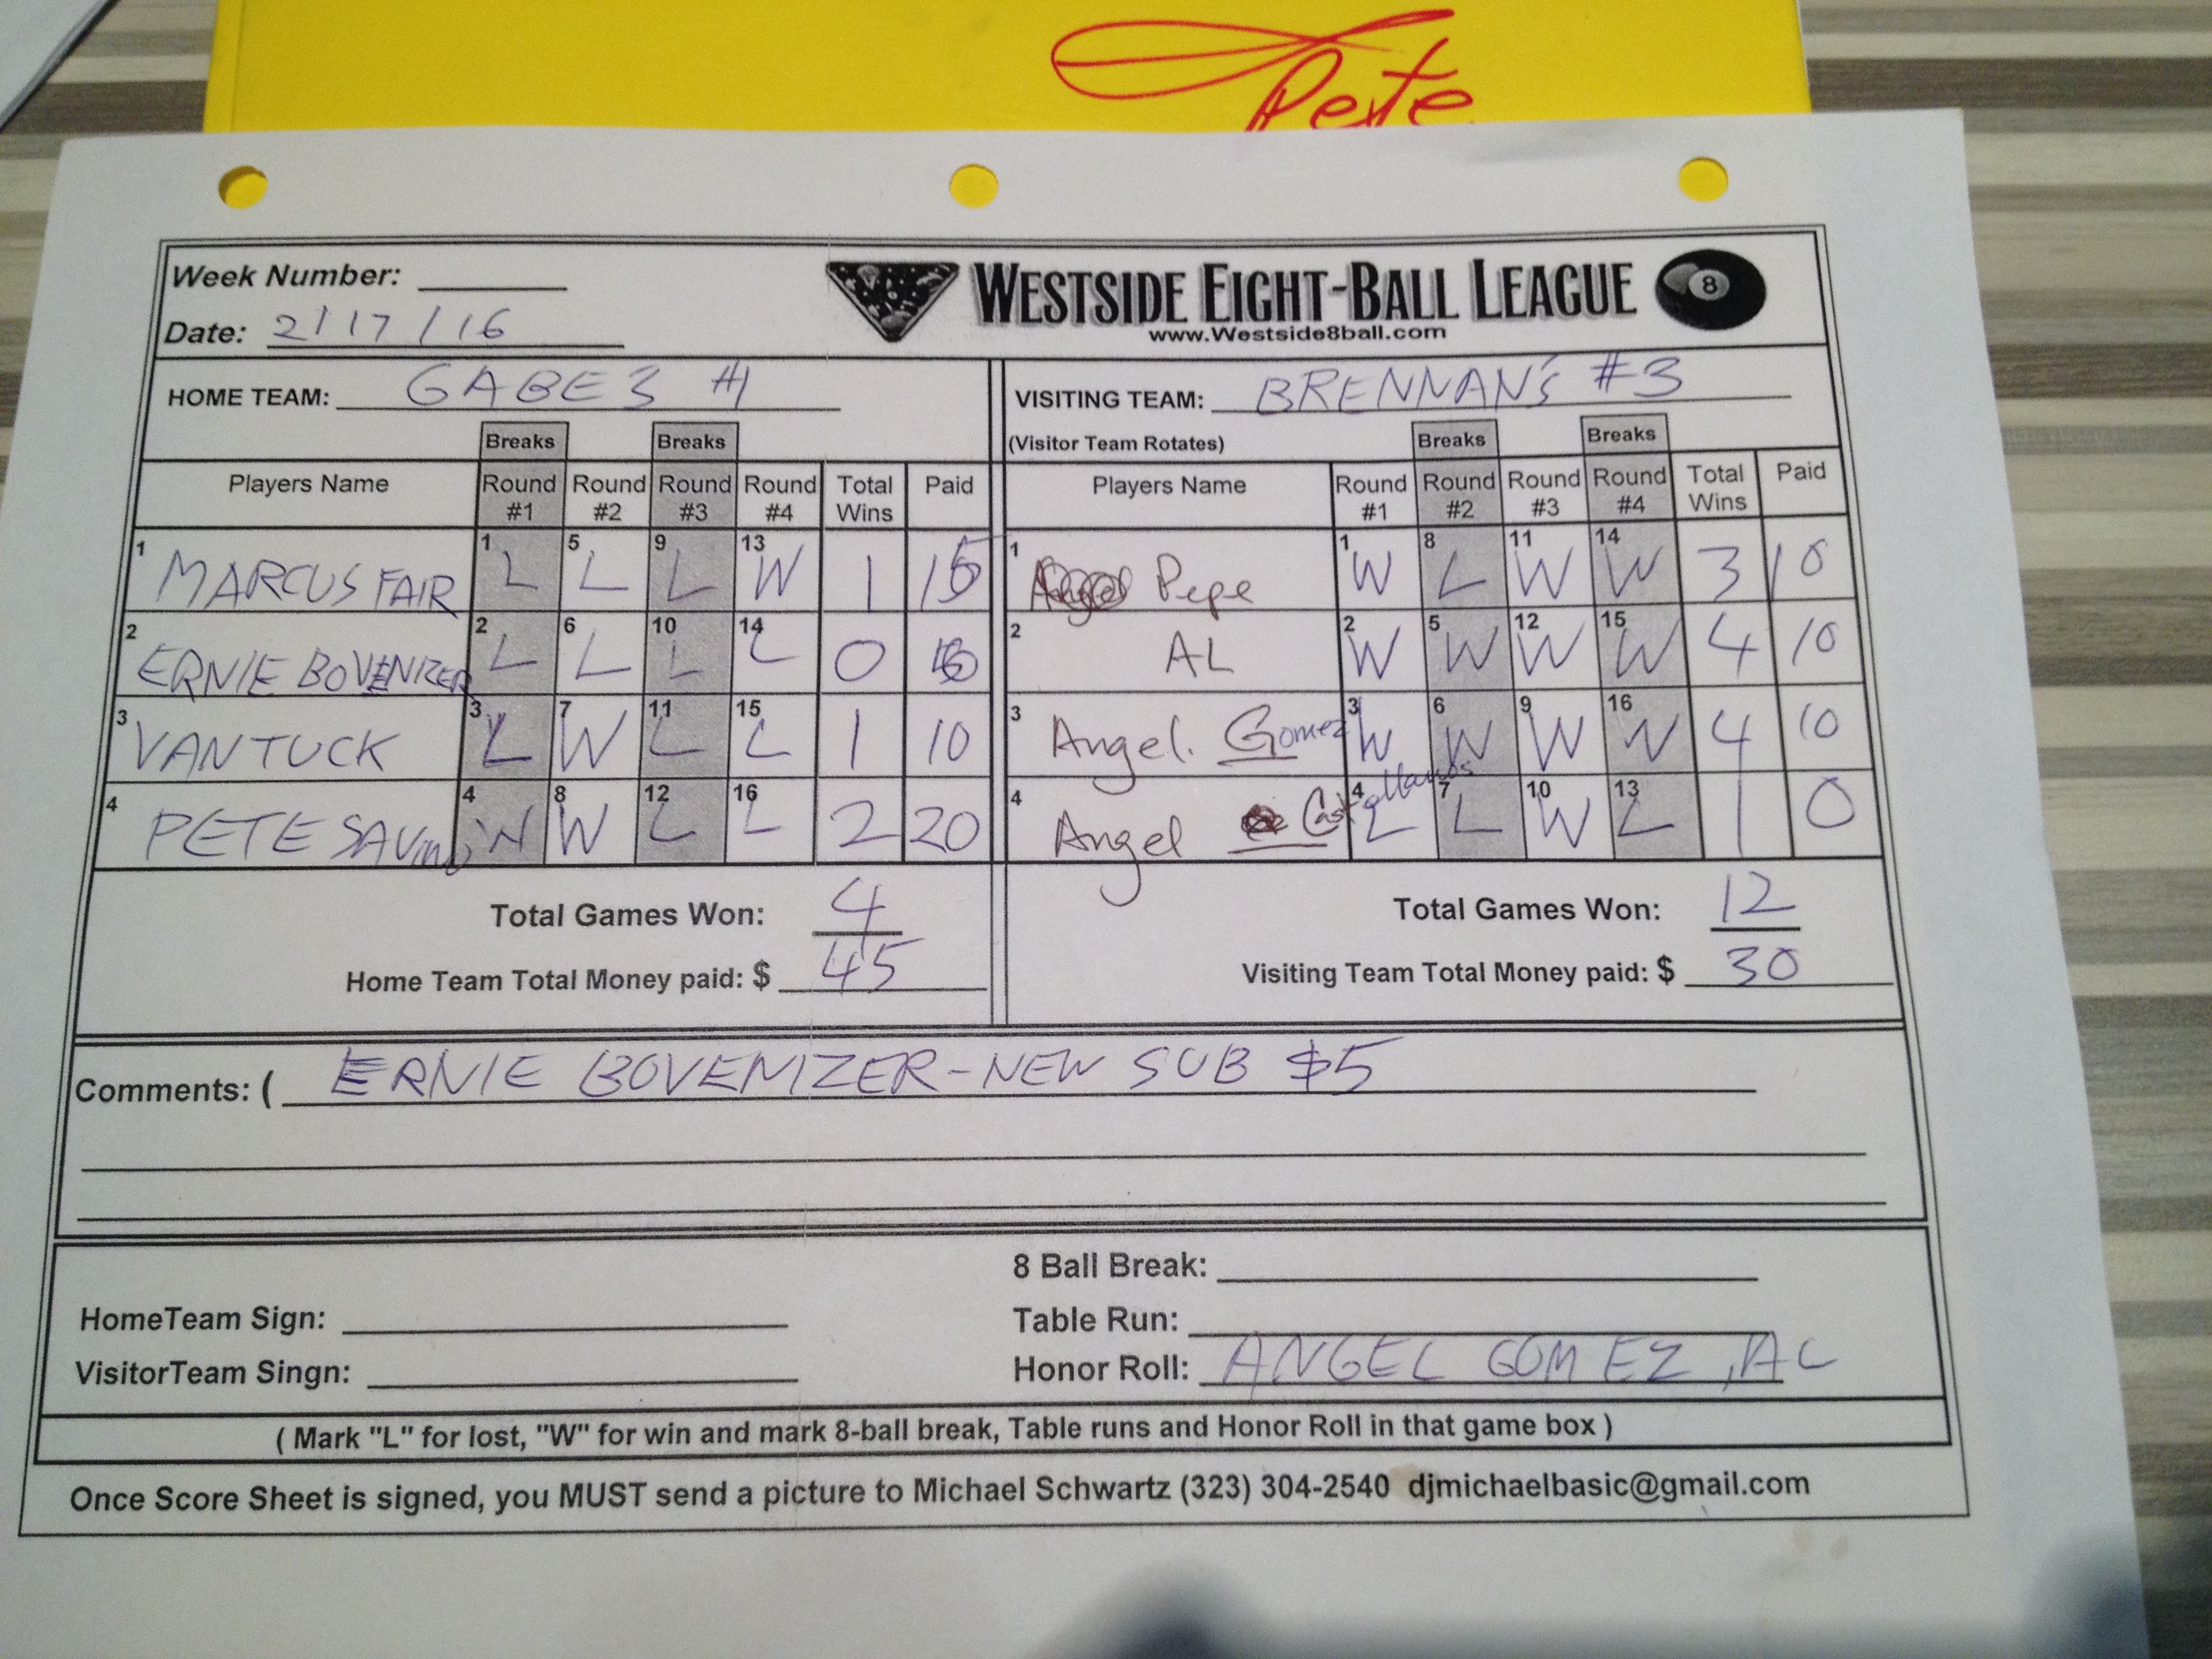 Pete
Week Number:
Date: 2/17/16
WESTSIDE EIGHT-BALL LEAGUE 8
www.Westside8ball.com
HOME TEAM: GABES #1
VISITING TEAM: BRENNAN'S #3
(Visitor Team Rotates)
Breaks Breaks Breaks Breaks
Players Name Round #1 Round #2 Round #3 Round #4 Total Wins Paid Players Name Round #1 Round #2 Round #3 Round #4 Total Wins Paid
1 MARCUS FAIR 1 L 5 L 9 L 13 W 1 1 Pepe 1 W 8 L 11 W 14 W 3 10
2 ERNIE BOVENIZER 2 L 6 L 10 L 14 L 0 2 AL 2 W 5 W 12 W 15 W 4 10
3 VAN TUCK 3 L 7 W 11 L 15 L 1 10 3 Angel. Gomez 3 W 6 W 9 W 16 W 4 10
4 PETE 4 W 8 W 12 L 16 L 2 20 4 Angel 4 L 7 L 10 W 13 L 1 0
Total Games Won: 4
Total Games Won: 12
Home Team Total Money paid: $ 45
Visiting Team Total Money paid: $ 30
Comments: ( ERNIE BOVENIZER-NEW SUB $5
8 Ball Break:
HomeTeam Sign:
Table Run:
VisitorTeam Singn:
Honor Roll: ANGEL GOMEZ, AL
( Mark "L" for lost, "W" for win and mark 8-ball break, Table runs and Honor Roll in that game box )
Once Score Sheet is signed, you MUST send a picture to Michael Schwartz (323) 304-2540 djmichaelbasic@gmail.com